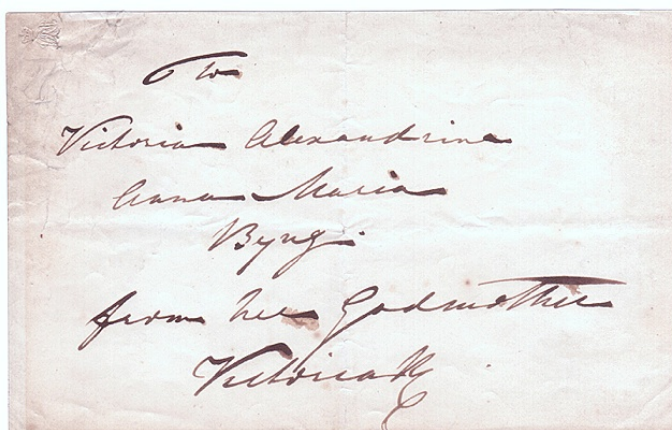 To
Victoria Alexandrina
Anna Maria
Byng.
from her Godmother
Victoria R